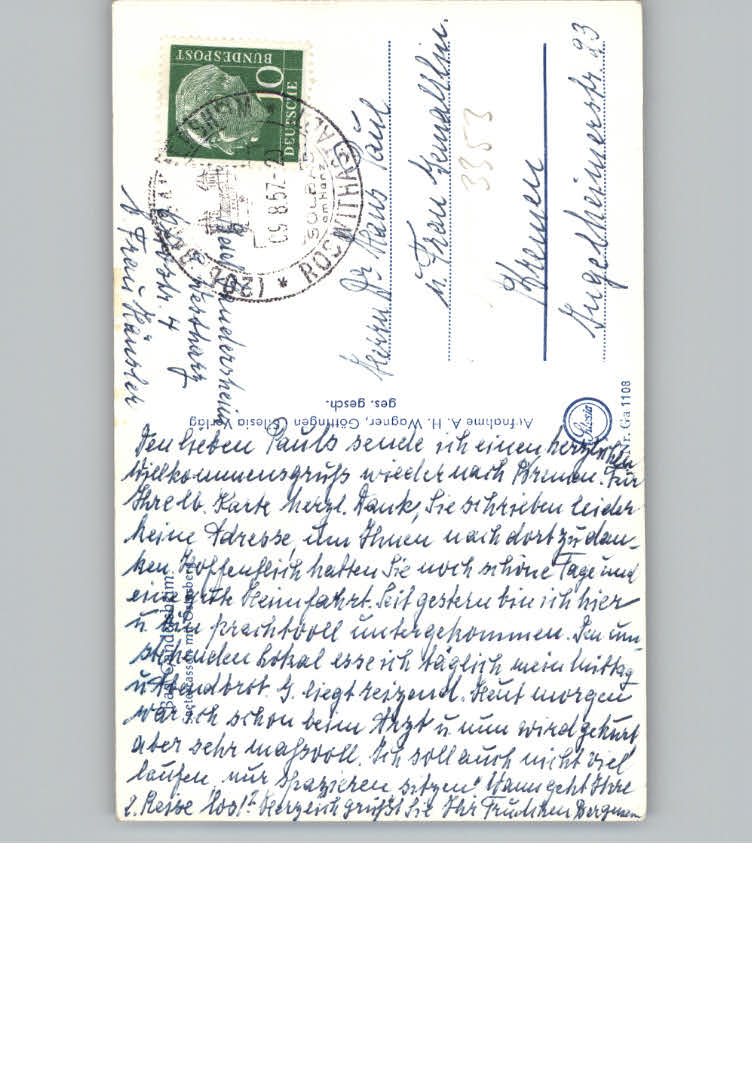 Den lieben Pauls sende ich einen herzlichen
Willkommensgruß wieder nach Bremen. Für
Ihre lb. Karte herzl. Dank, Sie schrieben leider
keine Adresse, um Ihnen nach dort zu dan-
ken. Hoffentlich hatten Sie noch schöne Tage und
eine gute Heimfahrt. Seit gestern bin ich hier
u. bin prachtvoll untergekommen. Den um-
stehenden Lokal esse ich täglich mein Mittag
u. Abendbrot. G. liegt reizend. Heut morgen
war ich schon beim Arzt u. nun wird gekurt
aber sehr maßvoll. Ich soll auch nicht viel
laufen, nur spazieren sitzen! Wann geht Ihre
2. Reise los? Herzlich grüßt Sie Ihr Trudchen
Bad Gandersheim
mit Osterberg
Aufnahme A. H. Wagner, Göttingen (Silesia Verlag
ges. gesch.
Silesia
Nr. Ga 1108
Bad Gandersheim
Westharz
4
b Frau
DEUTSCHE
BUNDESPOST
10
(20b) BAD GANDERSHEIM
* ROSWITHASTADT *
SOLBAD
am Harz
05.8.57.-20
Herrn Dr Hans Paul
u. Frau Gemahlin.
3353
Bremen
Ingelheimerstr. 23